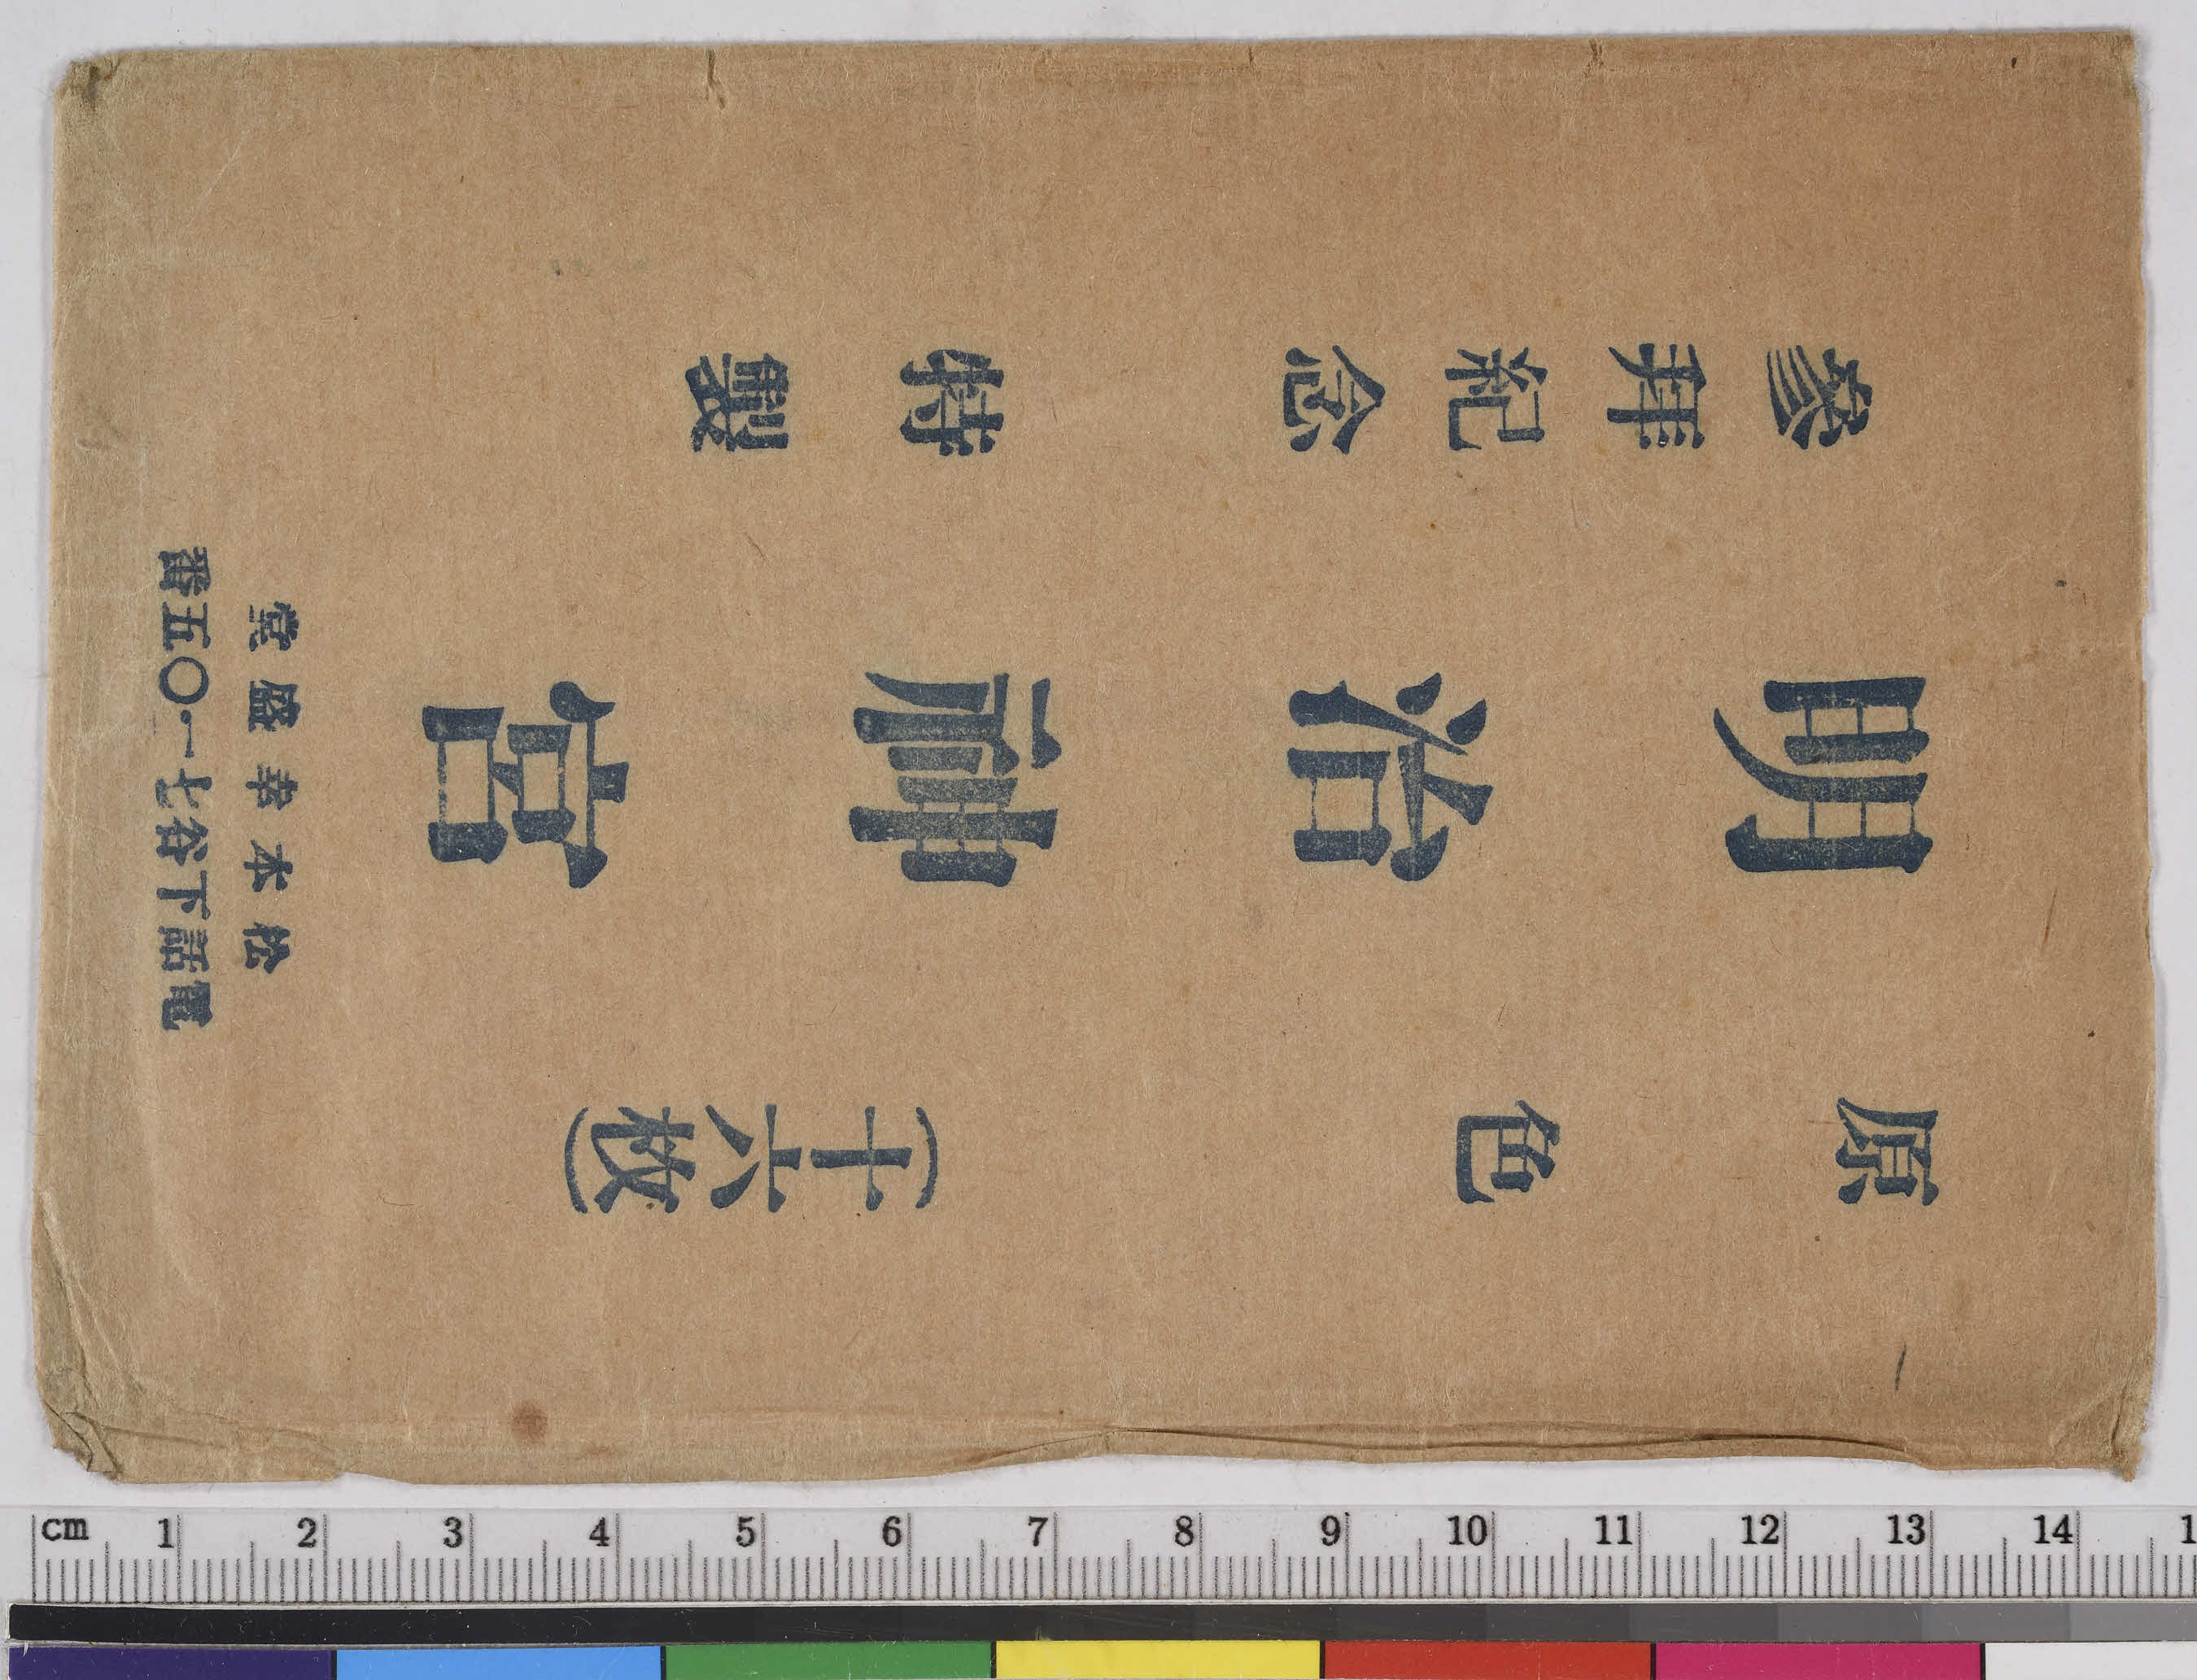 原色(十六枚)
明治神宮
參拜紀念 特製
松本幸盛堂
電話下谷七一〇五番
cm 1 2 3 4 5 6 7 8 9 10 11 12 13 14